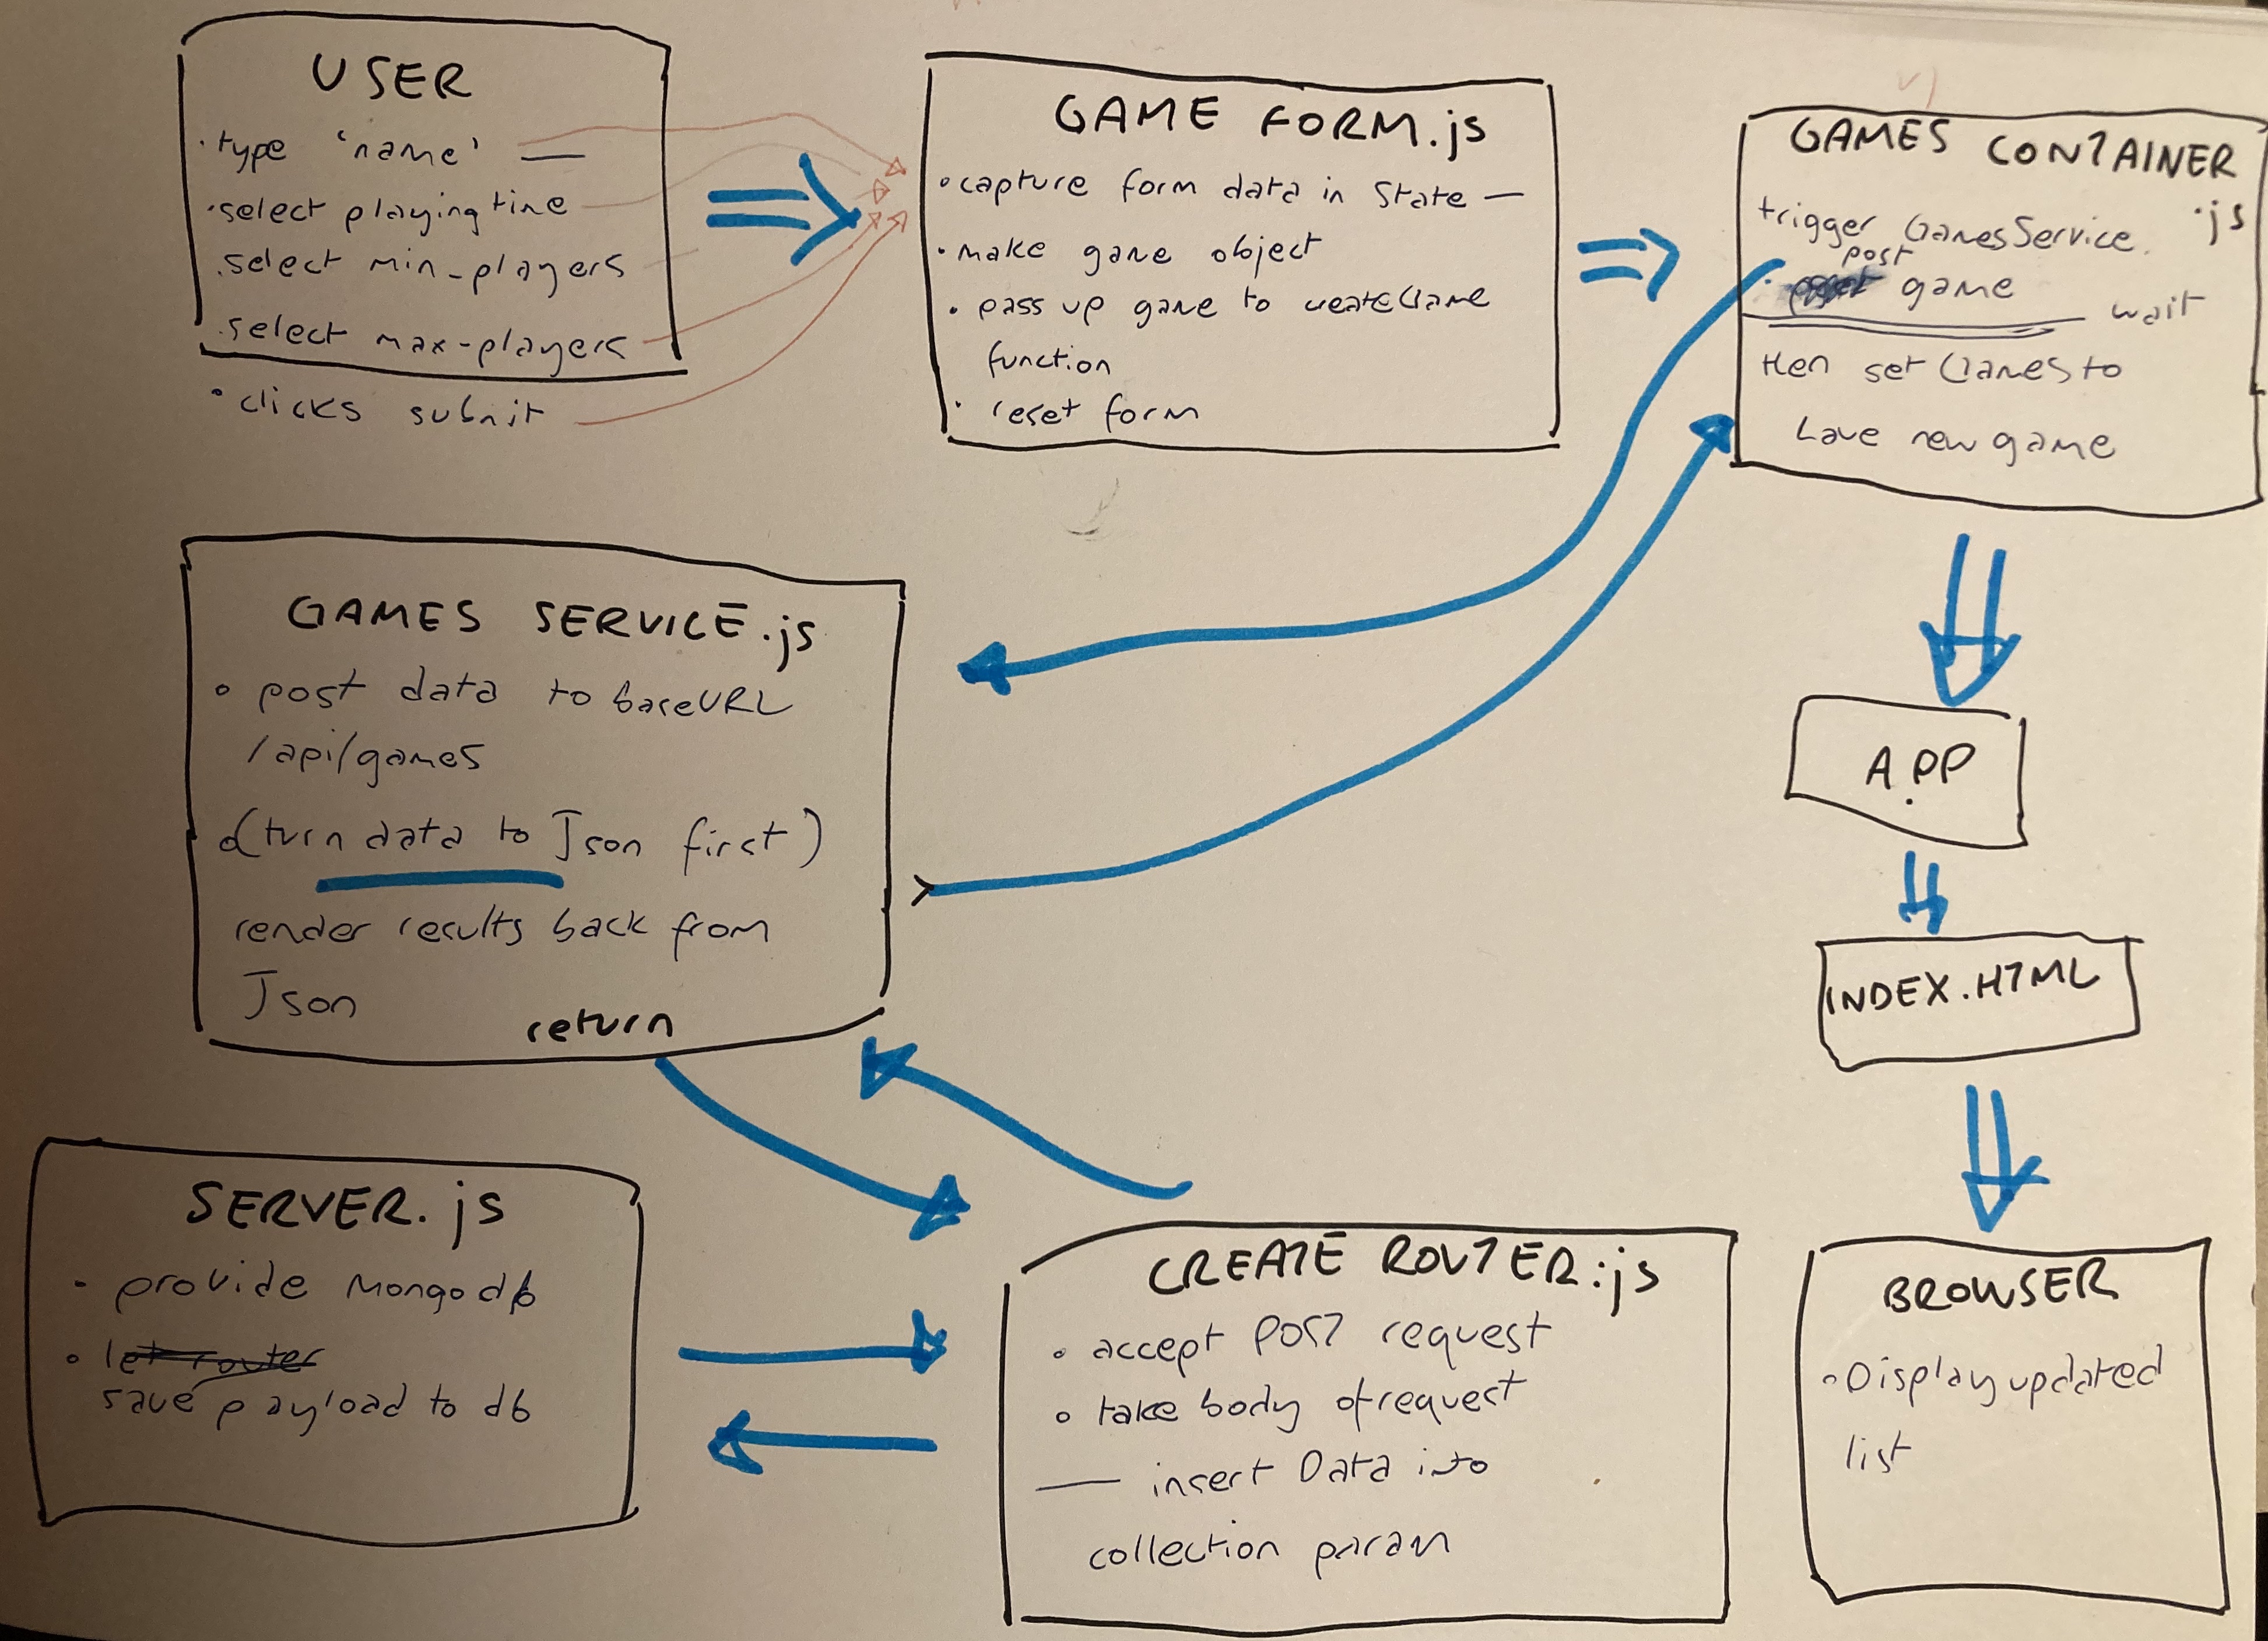 USER
· type 'name' —
· select playing time
· select min-players
· select max-players
· clicks submit
GAME FORM.js
· capture form data in State —
· make game object
· pass up game to createGame
function
· reset form
GAMES CONTAINER
.js
trigger GamesService.
post
· game
wait
then set Games to
have new game
GAMES SERVICE.js
· post data to baseURL
/api/games
· (turn data to Json first)
render results back from
Json
return
APP
INDEX.HTML
SERVER.js
· provide Mongodb
· let router
save payload to db
CREATE ROUTER.js
· accept POST request
· take body of request
— insert Data into
collection param
BROWSER
· Display updated
list